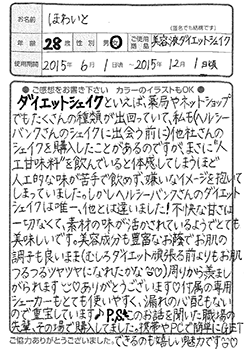 お名前 ほわいと
(匿名でも結構です)
年齢 28歳 性別 男・女 ご使用商品 美容液ダイエットシェイク
使用期間 2015年 6月 1日頃 ～ 2015年 12月 1日頃
◎ご感想をお書き下さい カラーのイラストもOK◎
ダイエットシェイクといえば、薬局やネットショップ
でもたくさんの種類が出回っていて、私もヘルシー
バンクさんのシェイクに出会う前に)他社さんの
シェイクを購入したことがあるのですが、まさに"人
工甘味料"を飲んでいると体感してしまうほど
人工的な味が苦手で飲めず、嫌いなイメージを抱いて
しまっていました。しかしヘルシーバンクさんのダイエット
シェイクは唯一、他とは違いました!不快な甘さは
一切なくて、素材の味が活かされているようでとても
美味しいです。美容成分も豊富なお蔭でお肌の
調子も良いまま(むしろダイエット頑張る前よりもお肌
つるつるツヤツヤになれたかな)周りから羨まし
がられます♡ありがとうございます♡付属の専用
シェーカーもとても使いやすく、漏れの心配もない
ので重宝しています♪P.S.このお話を聞いた職場の
先輩、その場で購入してました。携帯やPCで簡単にGET
ご協力ありがとうございました。できるのも嬉しい魅力ですね♡